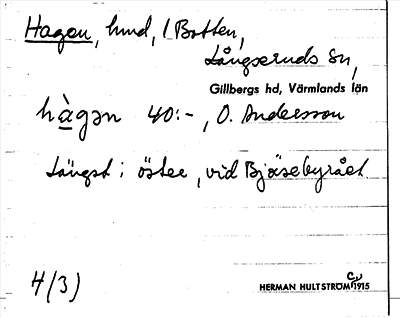 Hagen, hmd, i Botten,
Långseruds sn,
Gillbergs hd, Värmlands län
hàgən 40:-, O. Andersson
Längst i öster, vid Bjäsebyrået.
4/(3)
HERMAN HULTSTRÖM 1915